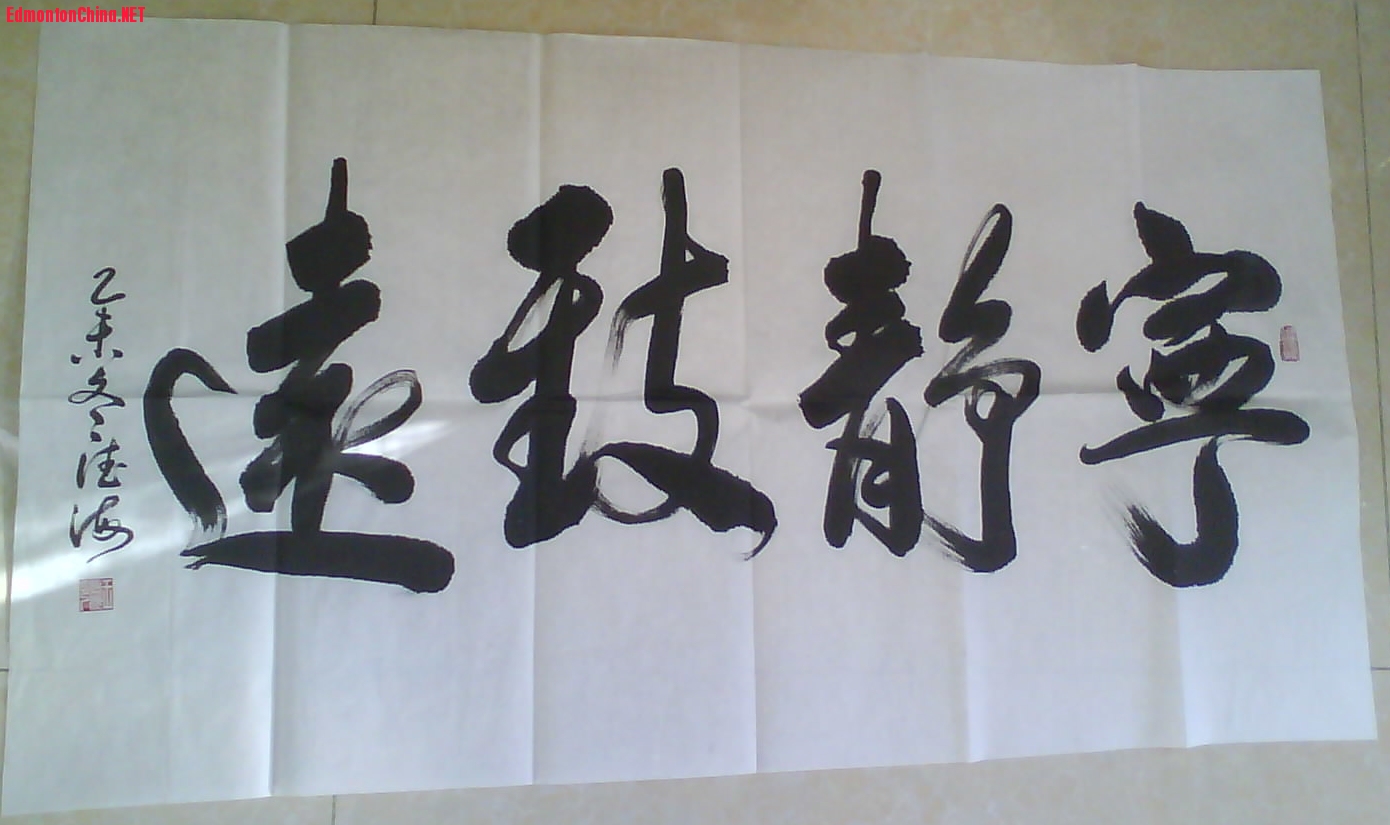 EdmontonChina.NET
寧靜致遠
乙未冬德海